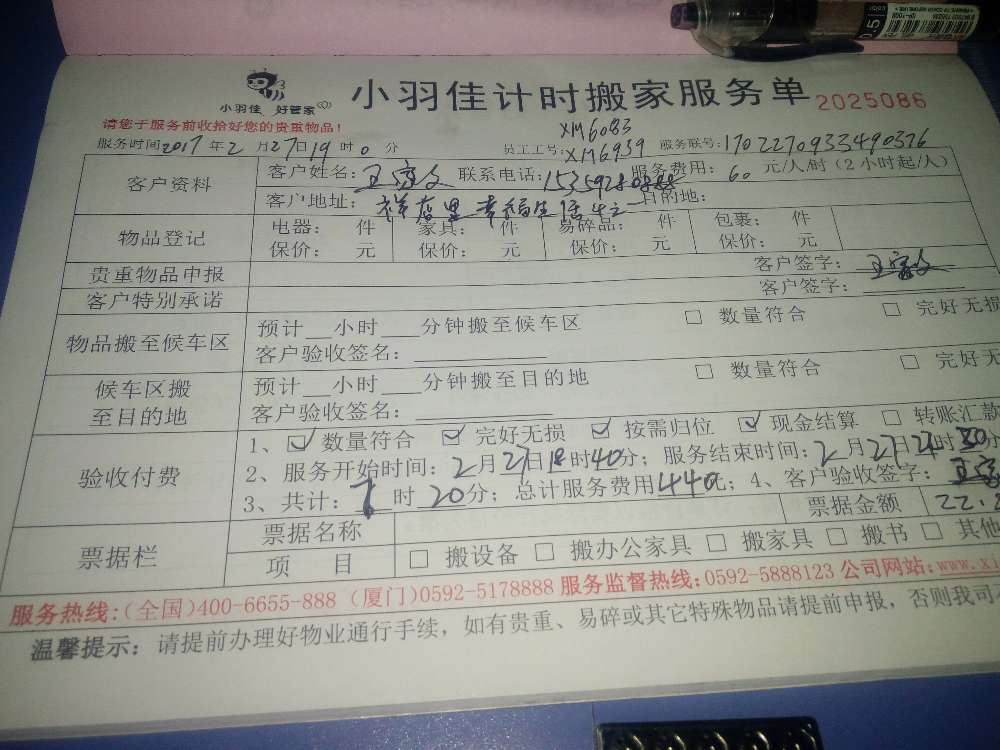 小羽佳 好管家
小羽佳计时搬家服务单 2025086
请您于服务前收拾好您的贵重物品!
XM6083
服务时间2017年2月27日19时0分 员工工号:XM6939 服务联号:1702270933490376
客户资料 客户姓名: 联系电话: 服务费用:60元/人/时(2小时起/人)
客户地址: 目的地:
物品登记 电器: 件 家具: 件 易碎品: 件 包裹: 件
保价: 元 保价: 元 保价: 元 保价: 元
贵重物品申报 客户签字:
客户特别承诺 客户签字:
物品搬至候车区 预计__小时___分钟搬至候车区 □ 数量符合 □ 完好无损
客户验收签名:
候车区搬至目的地 预计__小时___分钟搬至目的地 □ 数量符合 □ 完好无
客户验收签名:
验收付费 1、☑ 数量符合 ☑ 完好无损 ☑ 按需归位 ☑ 现金结算 □ 转账汇款
2、服务开始时间:2月27日18时40分;服务结束时间:2月27日
3、共计: 时20分;总计服务费用440元;4、客户验收签字:
票据栏 票据名称 票据金额 22.
项 目 □ 搬设备 □ 搬办公家具 □ 搬家具 □ 搬书 □ 其他
服务热线:(全国)400-6655-888 (厦门)0592-5178888 服务监督热线:0592-5888123 公司网站:www.xi
温馨提示:请提前办理好物业通行手续,如有贵重、易碎或其它特殊物品请提前申报,否则我司